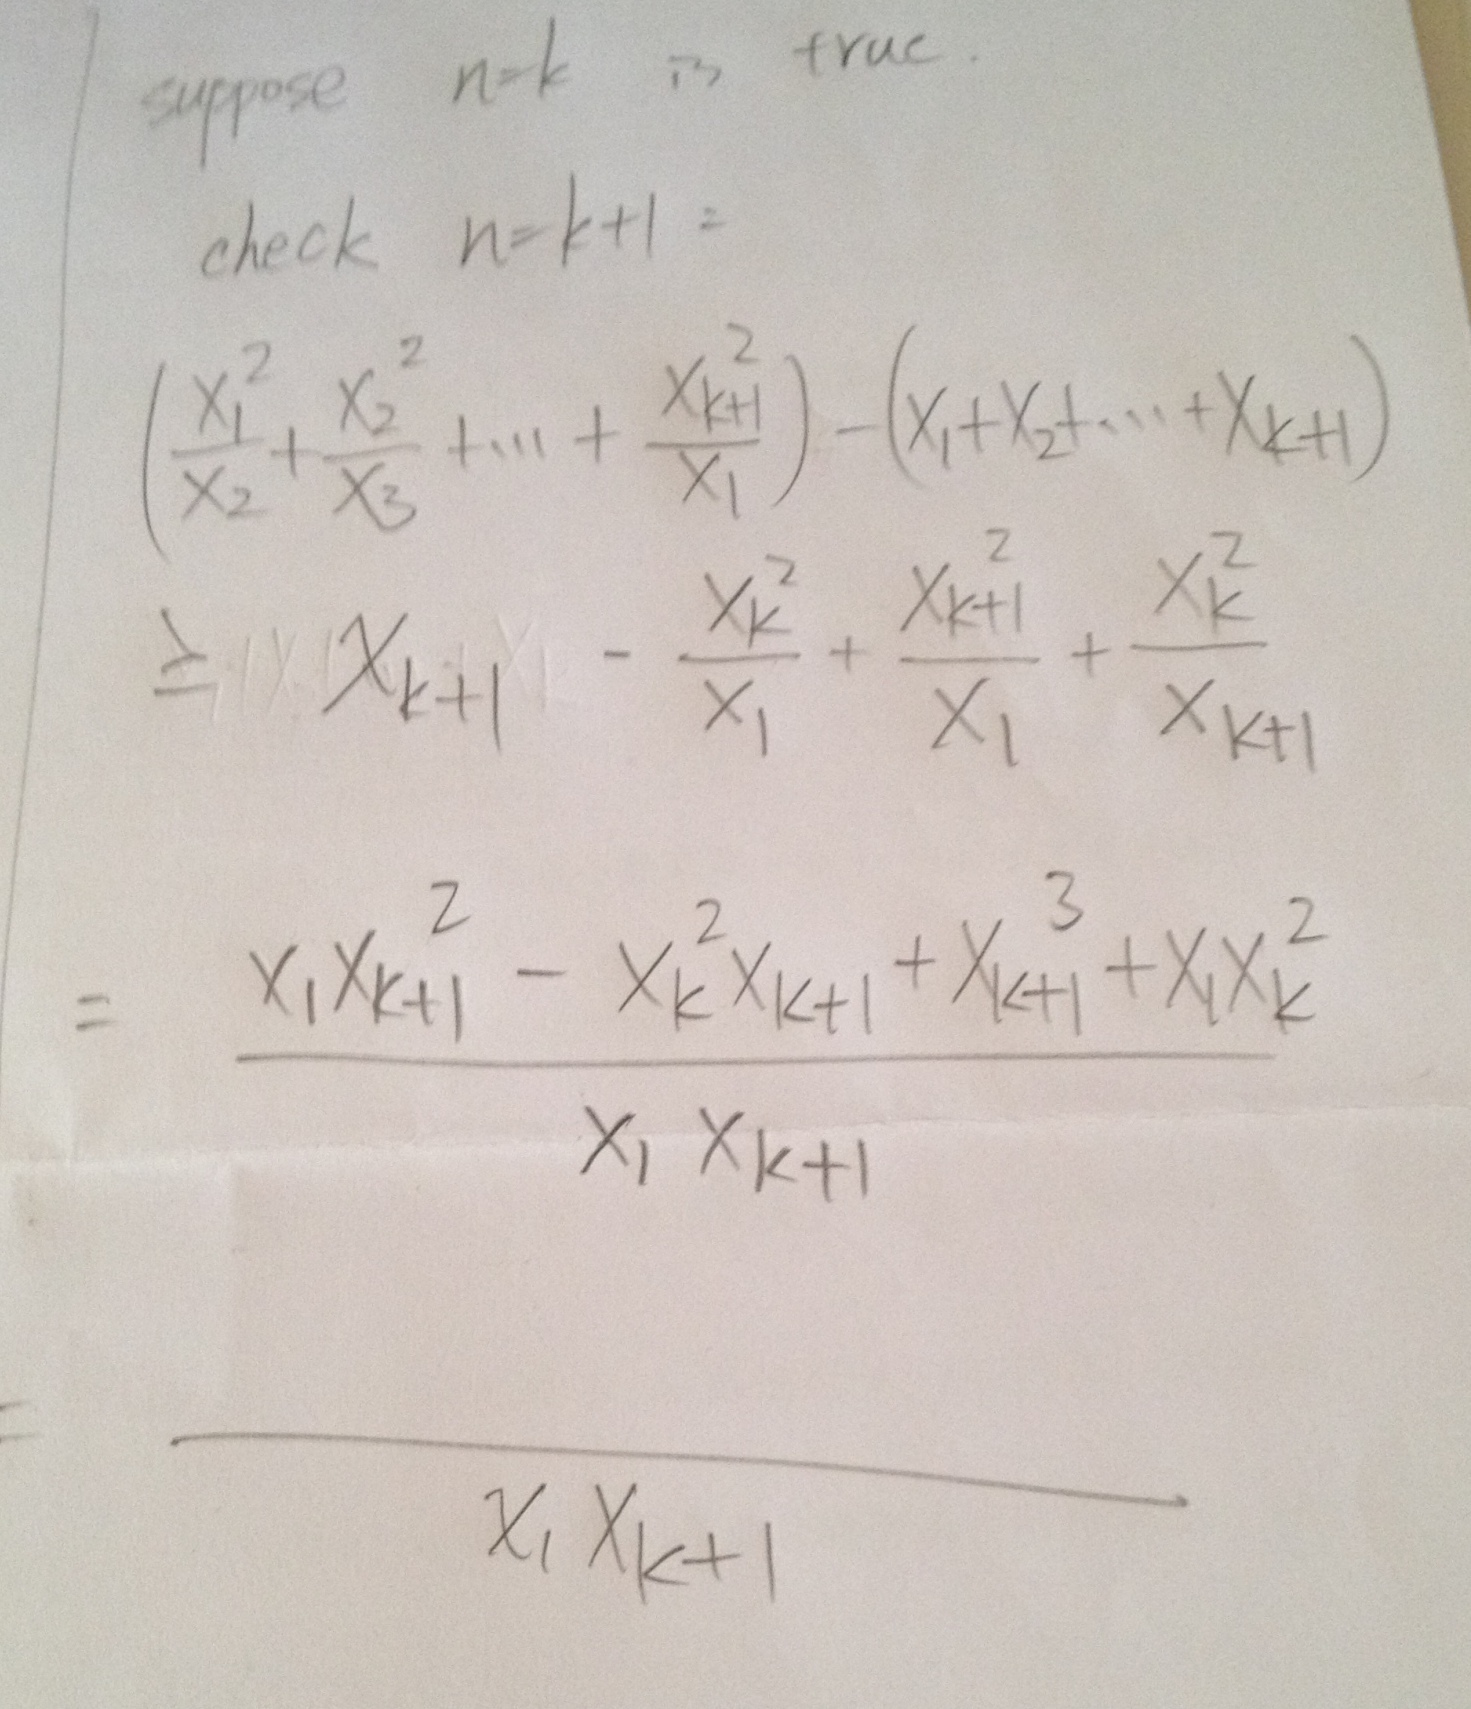 suppose n=k is true.
check n=k+1 =
(x₁²/x₂ + x₂²/x₃ + ... + x_{k+1}²/x₁) - (x₁+x₂+...+x_{k+1})
≥ x_{k+1} - x_k²/x₁ + x_{k+1}²/x₁ + x_k²/x_{k+1}
= (x₁x_{k+1}² - x_k²x_{k+1} + x_{k+1}³ + x₁x_k²)/(x₁x_{k+1})
= /(x₁x_{k+1})